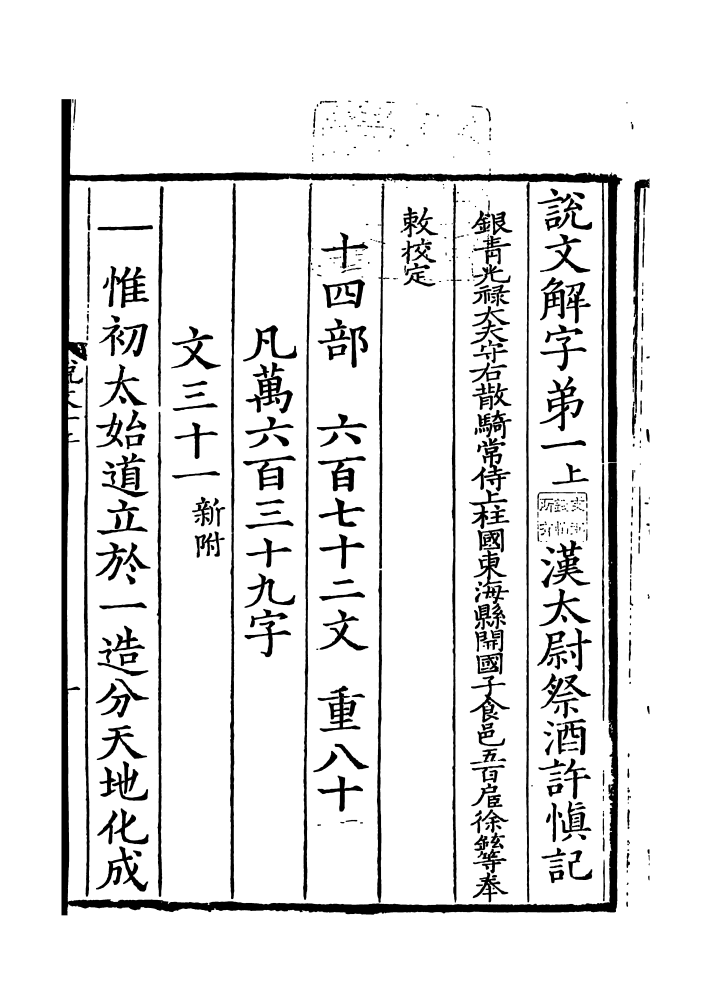 說文解字弟一上 漢太尉祭酒許愼記
銀青光祿大夫守右散騎常侍上柱國東海縣開國子食邑五百戶徐鉉等奉
敕校定
十四部 六百七十二文 重八十
凡萬六百三十九字
文三十一新附
一 惟初太始道立於一造分天地化成